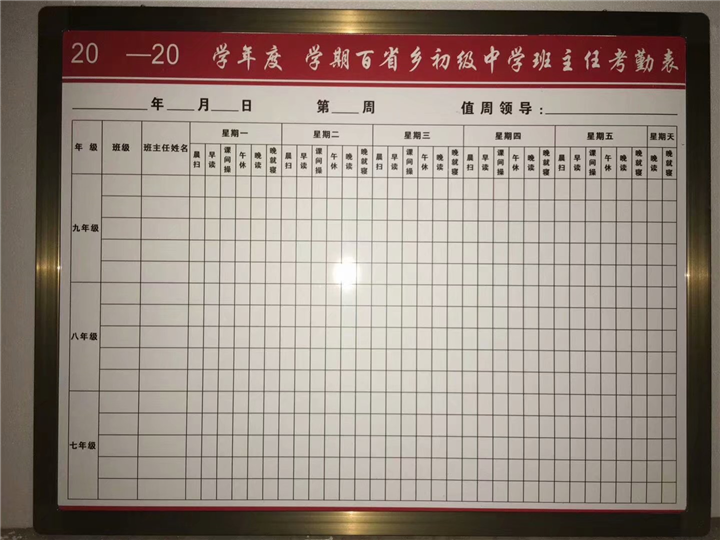 20 —20 学年度 学期百省乡初级中学班主任考勤表
____年___月___日 第___周 值周领导:____
年级 班级 班主任姓名 星期一 星期二 星期三 星期四 星期五 星期天
晨扫 早读 课间操 午休 晚读 晚就寝 晨扫 早读 课间操 午休 晚读 晚就寝 晨扫 早读 课间操 午休 晚读 晚就寝 晨扫 早读 课间操 午休 晚读 晚就寝 晨扫 早读 课间操 午休 晚读 晚就寝 晚读 晚就寝
九年级
八年级
七年级